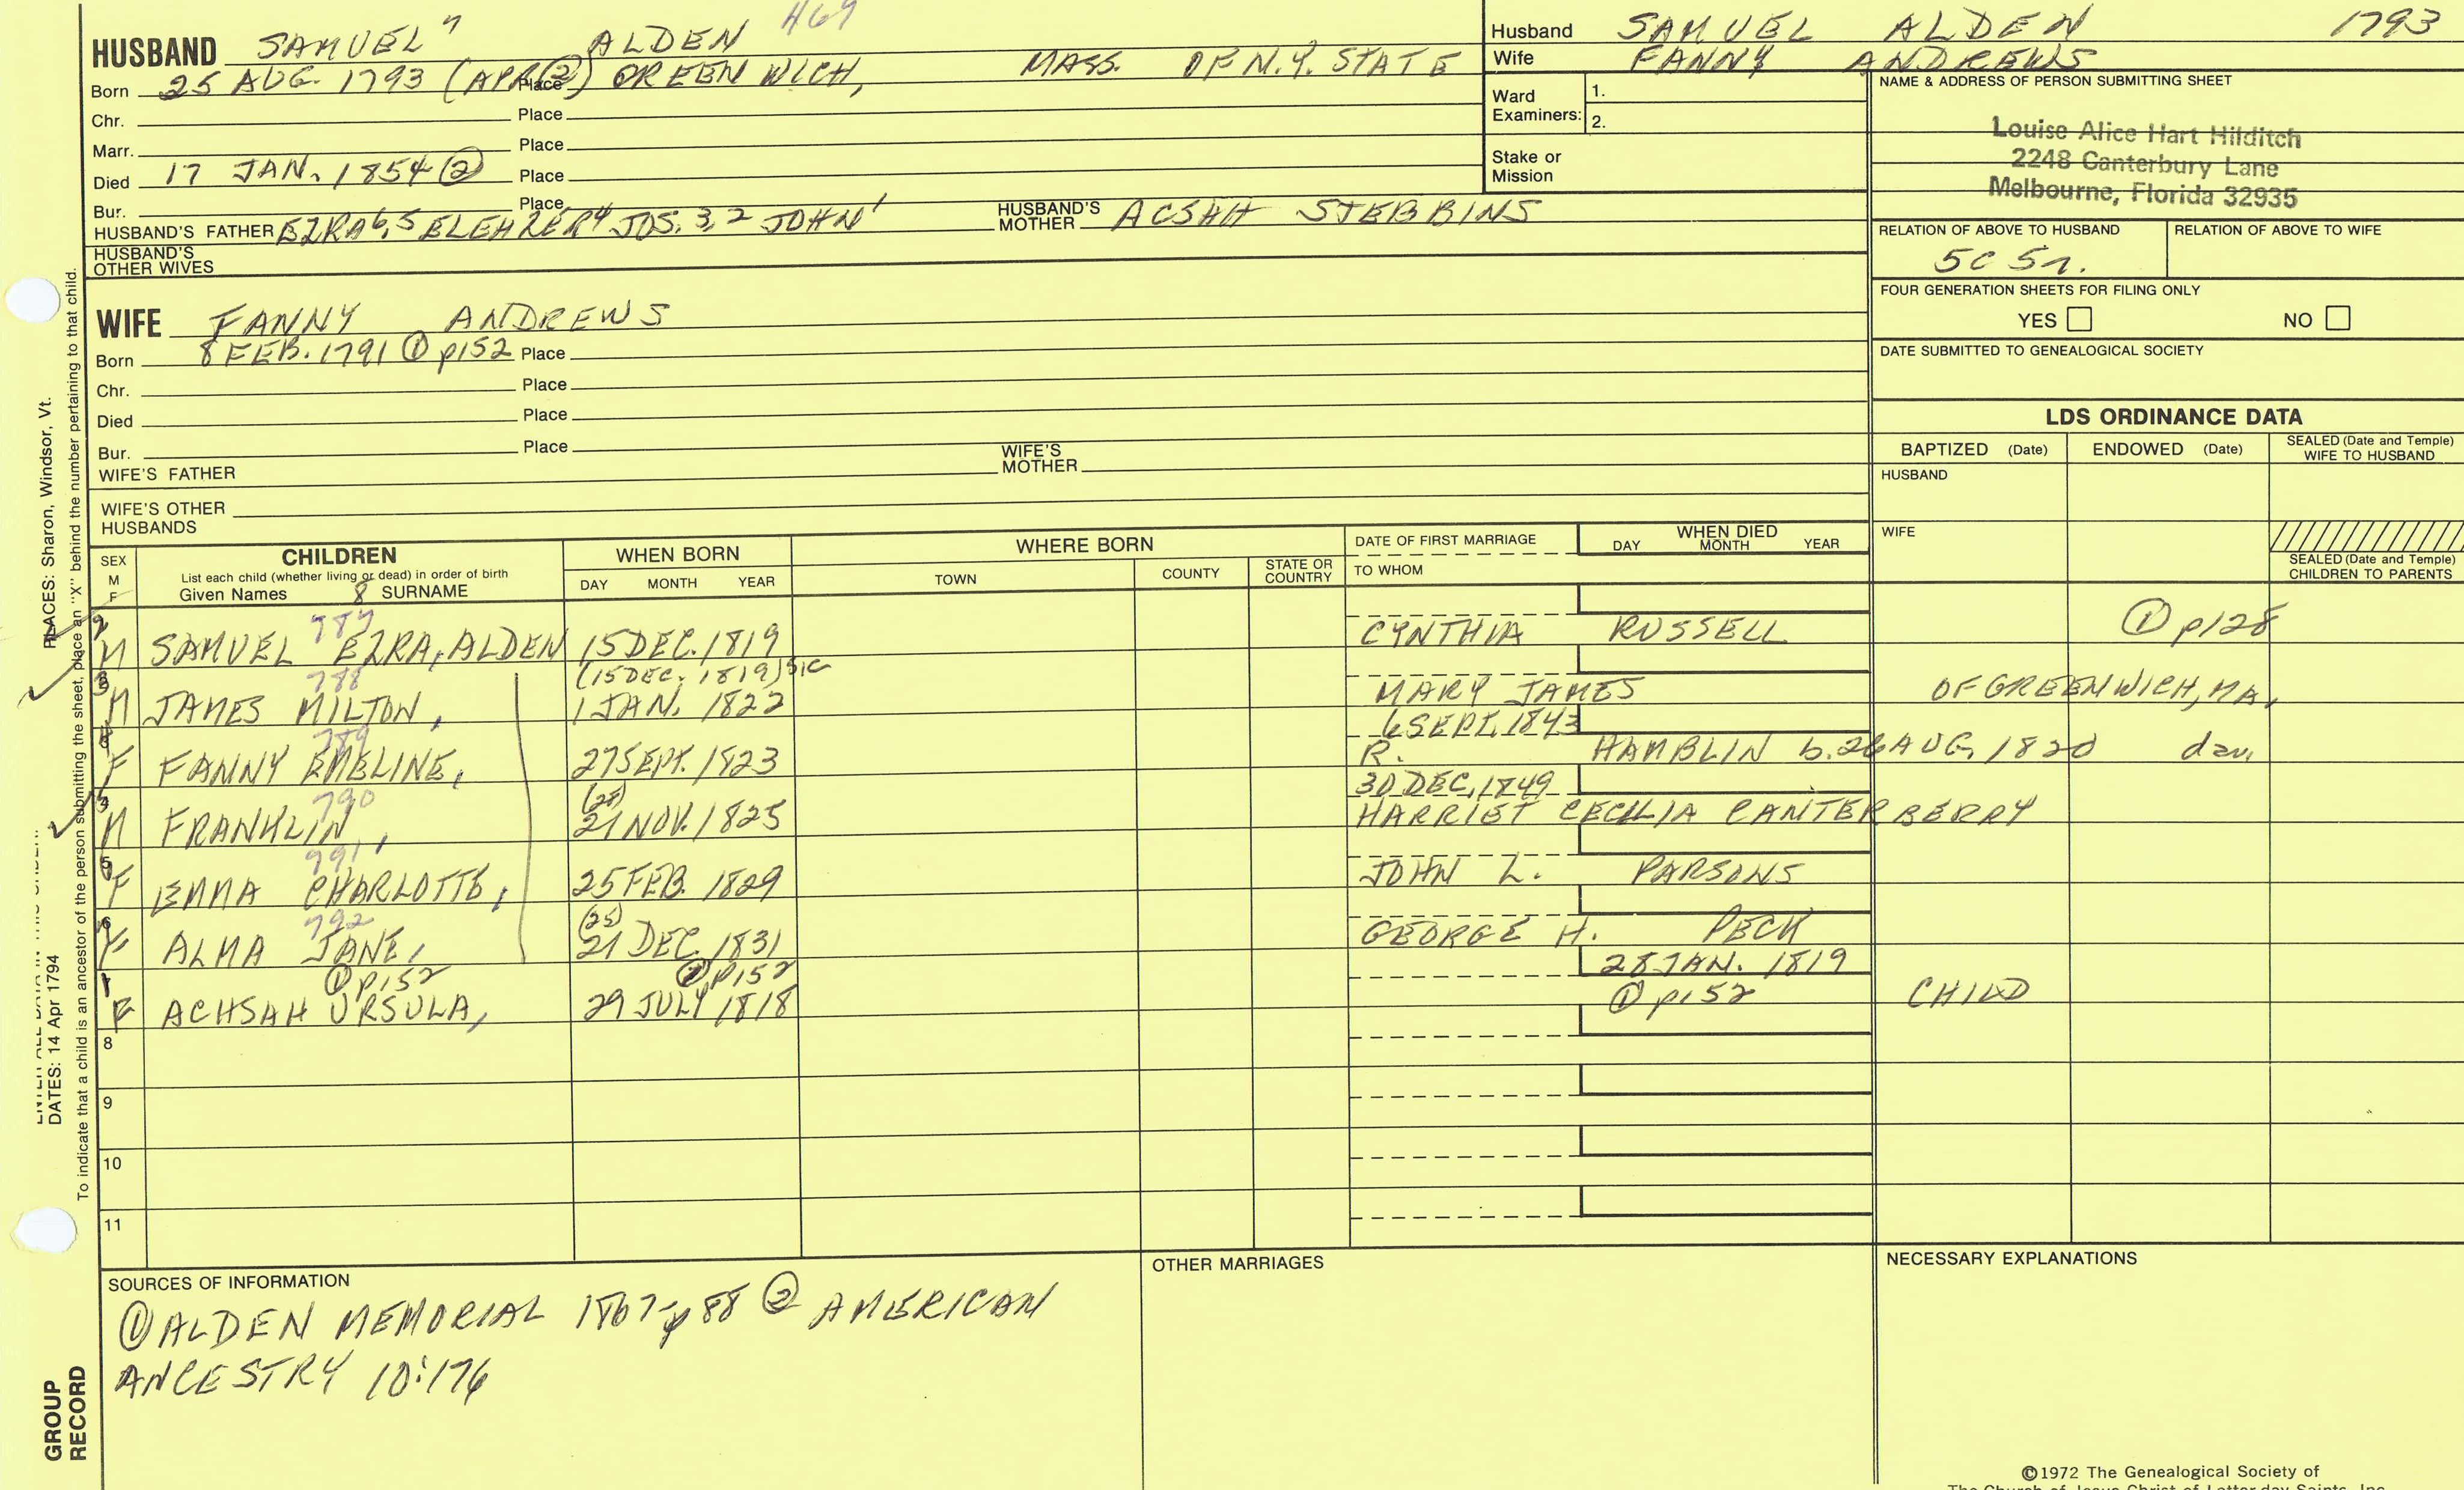 HUSBAND SAMUEL 7 ALDEN 469
Born 25 AUG. 1793 (APR ②) Place GREENWICH, MASS. OF N.Y. STATE
Chr. Place
Marr. Place
Died 17 JAN. 1854 ② Place
Bur. Place
HUSBAND'S FATHER EZRA 6, 5 ELEHZER 4 JOS. 3, 2 JOHN 1 HUSBAND'S MOTHER ACSAH STEBBINS
HUSBAND'S OTHER WIVES
Husband SAMUEL ALDEN 1793
Wife FANNY ANDREWS
Ward Examiners: 1.
2.
Stake or Mission
NAME & ADDRESS OF PERSON SUBMITTING SHEET
Louise Alice Hart Hilditch
2248 Canterbury Lane
Melbourne, Florida 32935
RELATION OF ABOVE TO HUSBAND RELATION OF ABOVE TO WIFE
5C 5r.
FOUR GENERATION SHEETS FOR FILING ONLY
YES NO
DATE SUBMITTED TO GENEALOGICAL SOCIETY
WIFE FANNY ANDREWS
Born 8 FEB. 1791 ① p152 Place
Chr. Place
Died Place
Bur. Place
WIFE'S FATHER WIFE'S MOTHER
WIFE'S OTHER HUSBANDS
LDS ORDINANCE DATA
BAPTIZED (Date) ENDOWED (Date) SEALED (Date and Temple) WIFE TO HUSBAND
HUSBAND
WIFE
SEALED (Date and Temple) CHILDREN TO PARENTS
SEX M F CHILDREN WHEN BORN WHERE BORN DATE OF FIRST MARRIAGE WHEN DIED
List each child (whether living or dead) in order of birth
Given Names 8 SURNAME DAY MONTH YEAR TOWN COUNTY STATE OR COUNTRY TO WHOM DAY MONTH YEAR
787
2 M SAMUEL EZRA, ALDEN 15 DEC. 1819 CYNTHIA RUSSELL ① p128
788 (15 DEC. 1819) SIC
3 M JAMES MILTON, 1 JAN. 1822 MARY JAMES OF GREENWICH, MA,
789 6 SEPT. 1843
F FANNY EMELINE, 27 SEPT. 1823 R. HAMBLIN b. 26 AUG. 1820 dau,
790 (28) 30 DEC. 1849
M FRANKLIN, 21 NOV. 1825 HARRIET CECILIA CANTERBERRY
791
F EMMA CHARLOTTE, 25 FEB. 1829 JOHN L. PARSONS
792 (25)
6 F ALMA JANE, 21 DEC. 1831 GEORGE H. PECK
① p152 ① p152 28 JAN. 1819
1 F ACHSAH URSULA, 29 JULY 1818 ① p152 CHILD
8
9
10
11
SOURCES OF INFORMATION
① ALDEN MEMORIAL 1867-p 88 ② AMERICAN
ANCESTRY 10:176
OTHER MARRIAGES
NECESSARY EXPLANATIONS
©1972 The Genealogical Society of
The Church of Jesus Christ of Latter-day Saints, Inc.
PLACES: Sharon, Windsor, Vt.
DATES: 14 Apr 1794
To indicate that a child is an ancestor of the person submitting the sheet, place an "X" behind the number pertaining to that child.
GROUP
RECORD